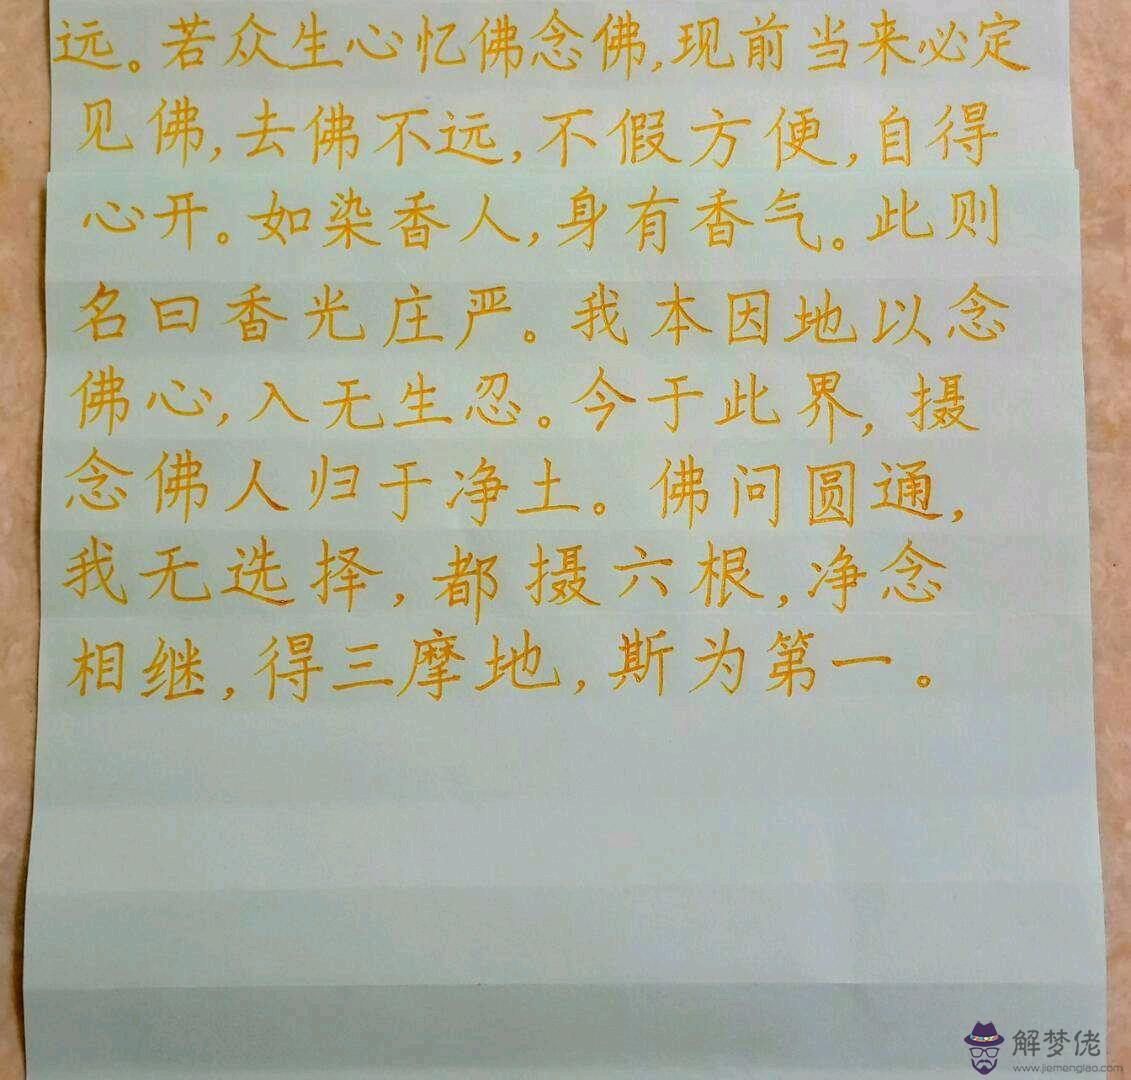 远。若众生心忆佛念佛,现前当来必定
见佛,去佛不远,不假方便,自得
心开。如染香人,身有香气。此则
名曰香光庄严。我本因地以念
佛心,入无生忍。今于此界,摄
念佛人归于净土。佛问圆通,
我无选择,都摄六根,净念
相继,得三摩地,斯为第一。
解梦佬
www.jiemenglao.com